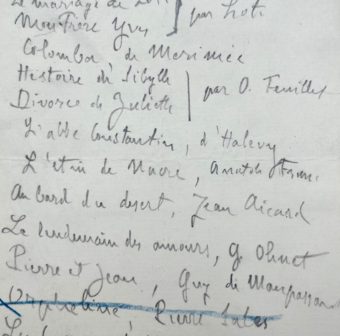 Le mariage de Loti
Mon Frère Yves } par Loti
Colomba de Merimée
Histoire de Sibylle
Divorce de Juliette | par O. Feuillet
L'abbé Constantin, d'Halevy
L'étui de Nacre, Anatole France
Au bord du desert, Jean Aicard
Le lendemain des amours, G. Ohnet
Pierre et Jean, Guy de Maupassant
Orpheline Pierre Sales